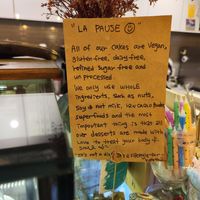 "LA PAUSE 😊"
All of our cakes are Vegan,
Gluten-free, dairy-free,
refined sugar-free and
unprocessed.
We only use WHOLE
Ingredients, such as nuts,
Soy or oat milk, raw cacao
Superfoods and the most
important thing is that all
our desserts are made with
Love to treat your body &